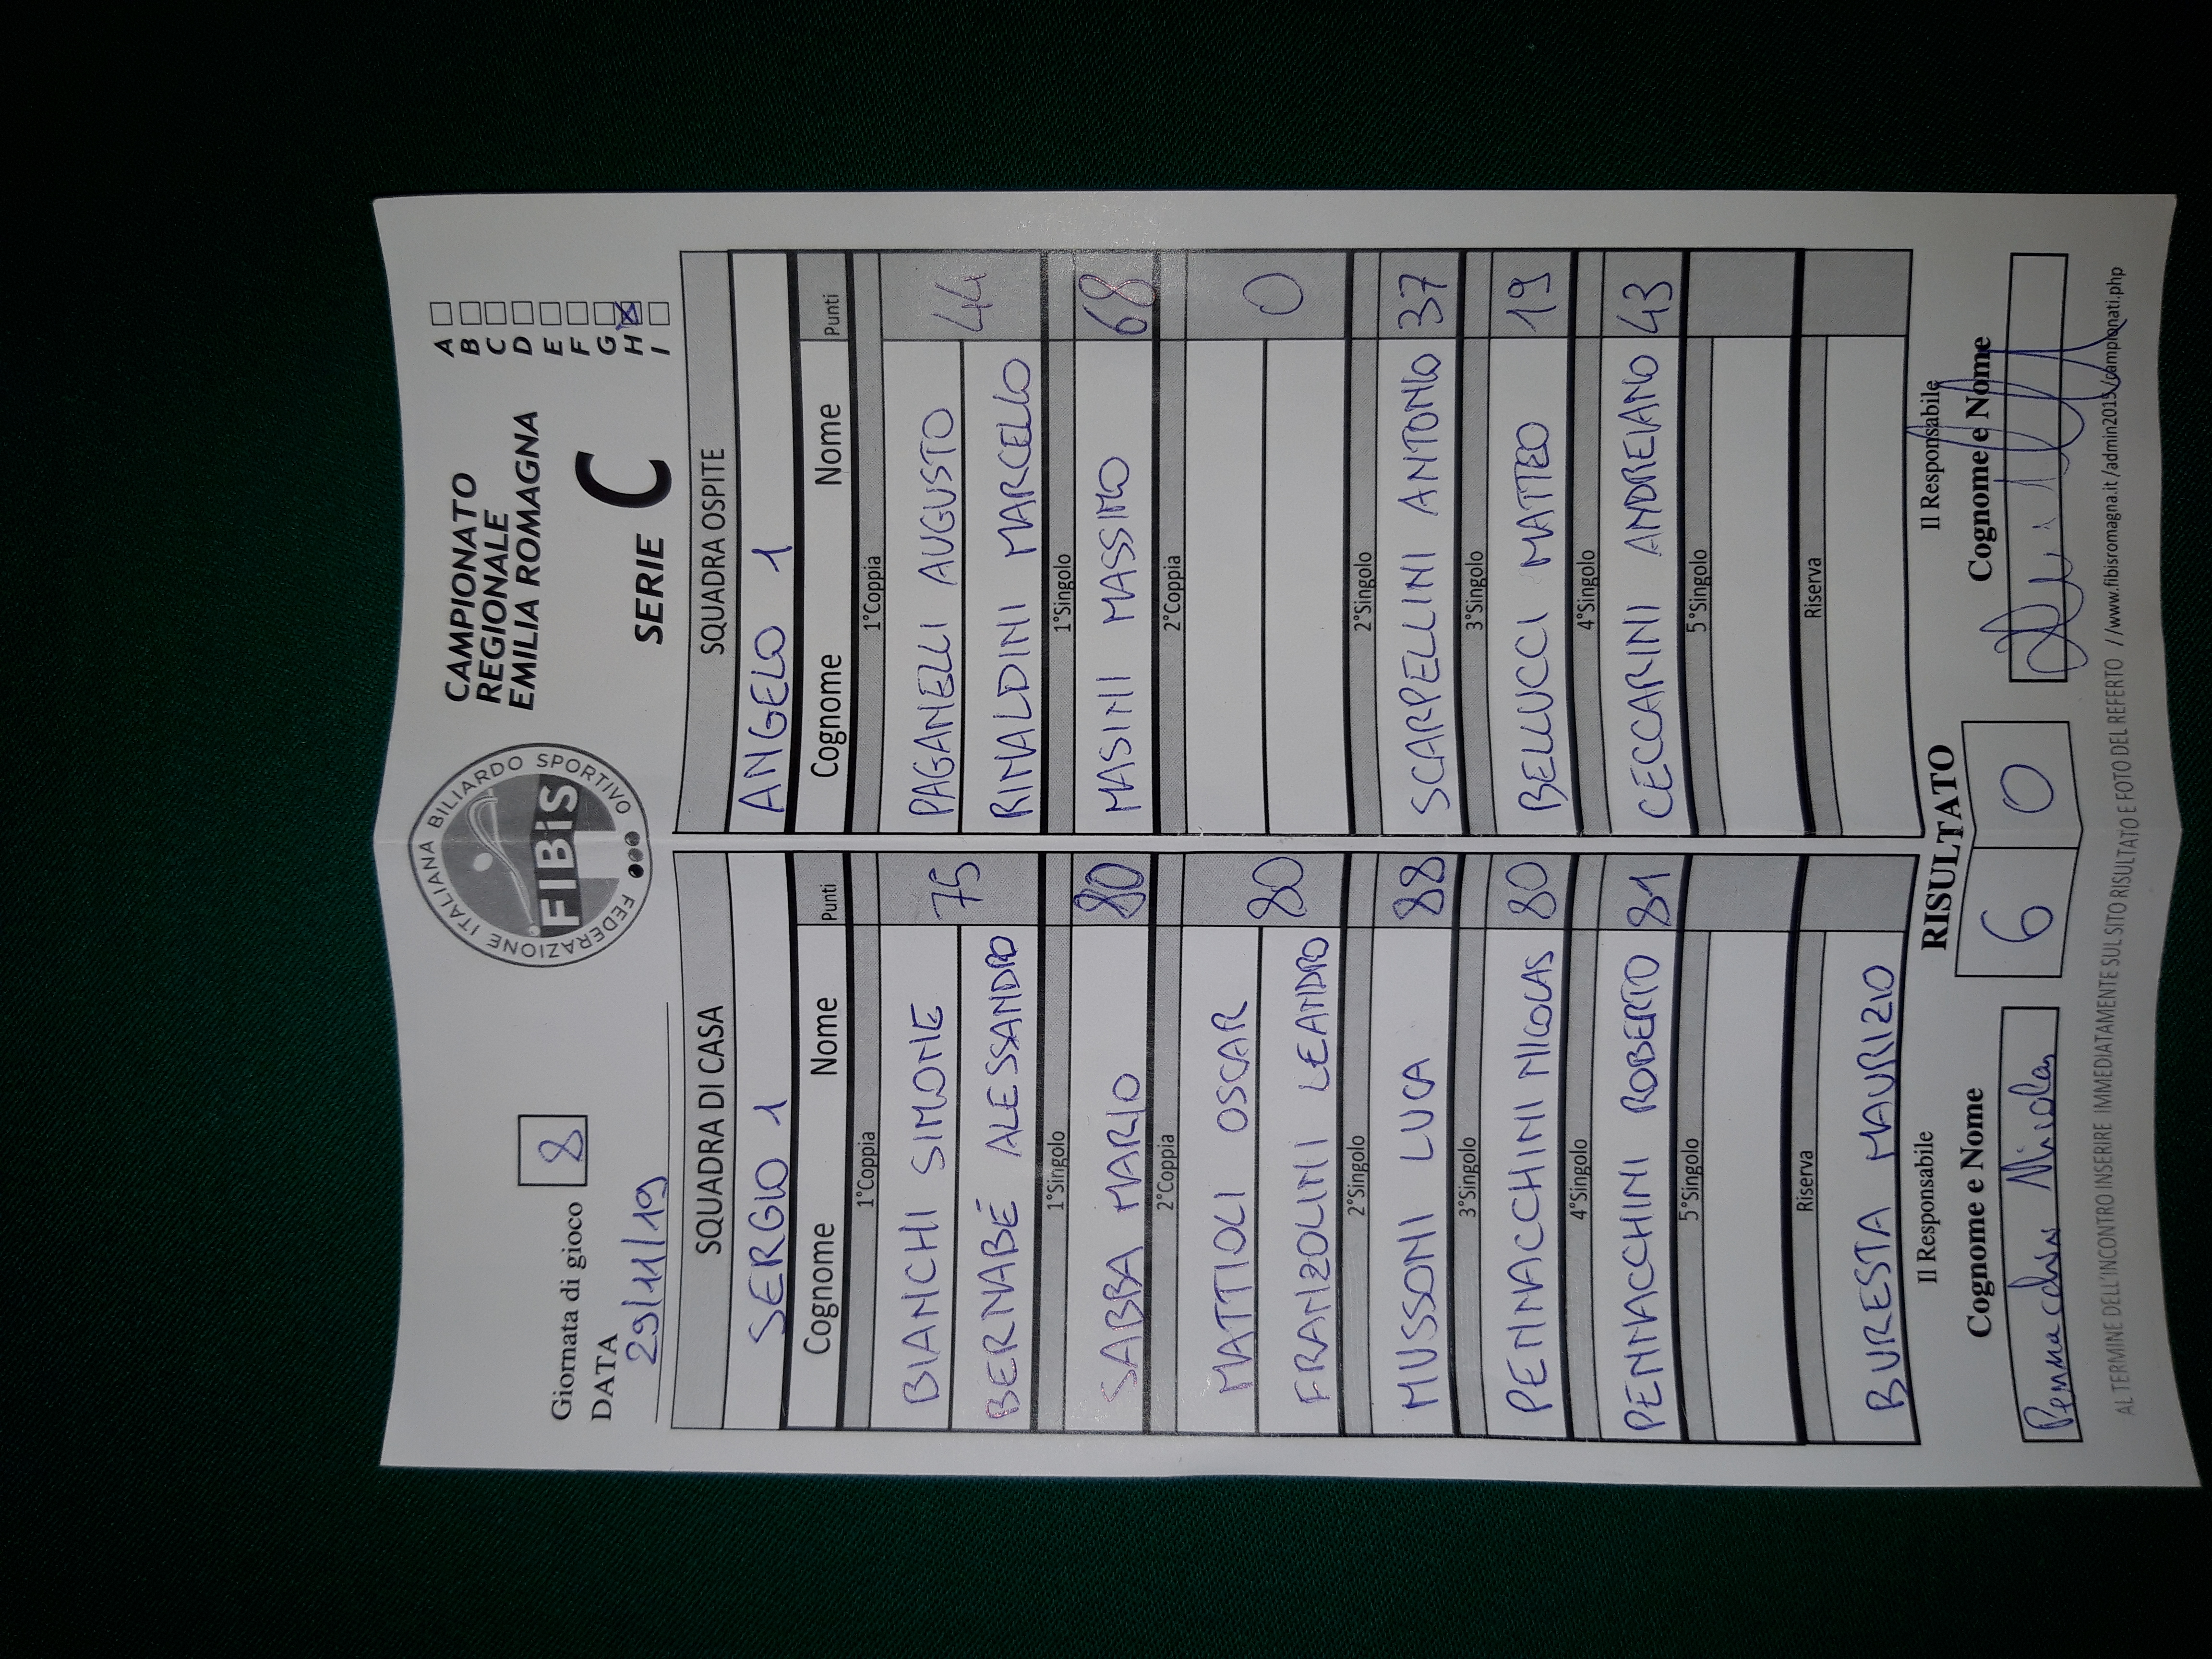 Giornata di gioco 8
DATA
29/11/19
FEDERAZIONE ITALIANA BILIARDO SPORTIVO
FIBiS
CAMPIONATO
REGIONALE
EMILIA ROMAGNA
SERIE C
A
B
C
D
E
F
G
H X
I
SQUADRA DI CASA
SERGIO 1
Cognome Nome Punti
1°Coppia
BIANCHI SIMONE
BERNABÉ ALESSANDRO
75
1°Singolo
SABBA MARIO 80
2°Coppia
MATTIOLI OSCAR
FRANZOLINI LEANDRO
80
2°Singolo
MUSSONI LUCA 88
3°Singolo
PENNACCHINI NICOLAS 80
4°Singolo
PENNACCHINI ROBERTO 81
5°Singolo
Riserva
BURESTA MAURIZIO
SQUADRA OSPITE
ANGELO 1
Cognome Nome Punti
1°Coppia
PAGANELLI AUGUSTO
RINALDINI MARCELLO
44
1°Singolo
MASINI MASSIMO 68
2°Coppia
0
2°Singolo
SCARPELLINI ANTONIO 37
3°Singolo
BELLUCCI MATTEO 19
4°Singolo
CECCARINI ANDREIANO 43
5°Singolo
Riserva
Il Responsabile
Cognome e Nome
Pennacchini Nicolas
RISULTATO
6 0
Il Responsabile
Cognome e Nome
AL TERMINE DELL'INCONTRO INSERIRE IMMEDIATAMENTE SUL SITO RISULTATO E FOTO DEL REFERTO //www.fibisromagna.it/admin2015/campionati.php